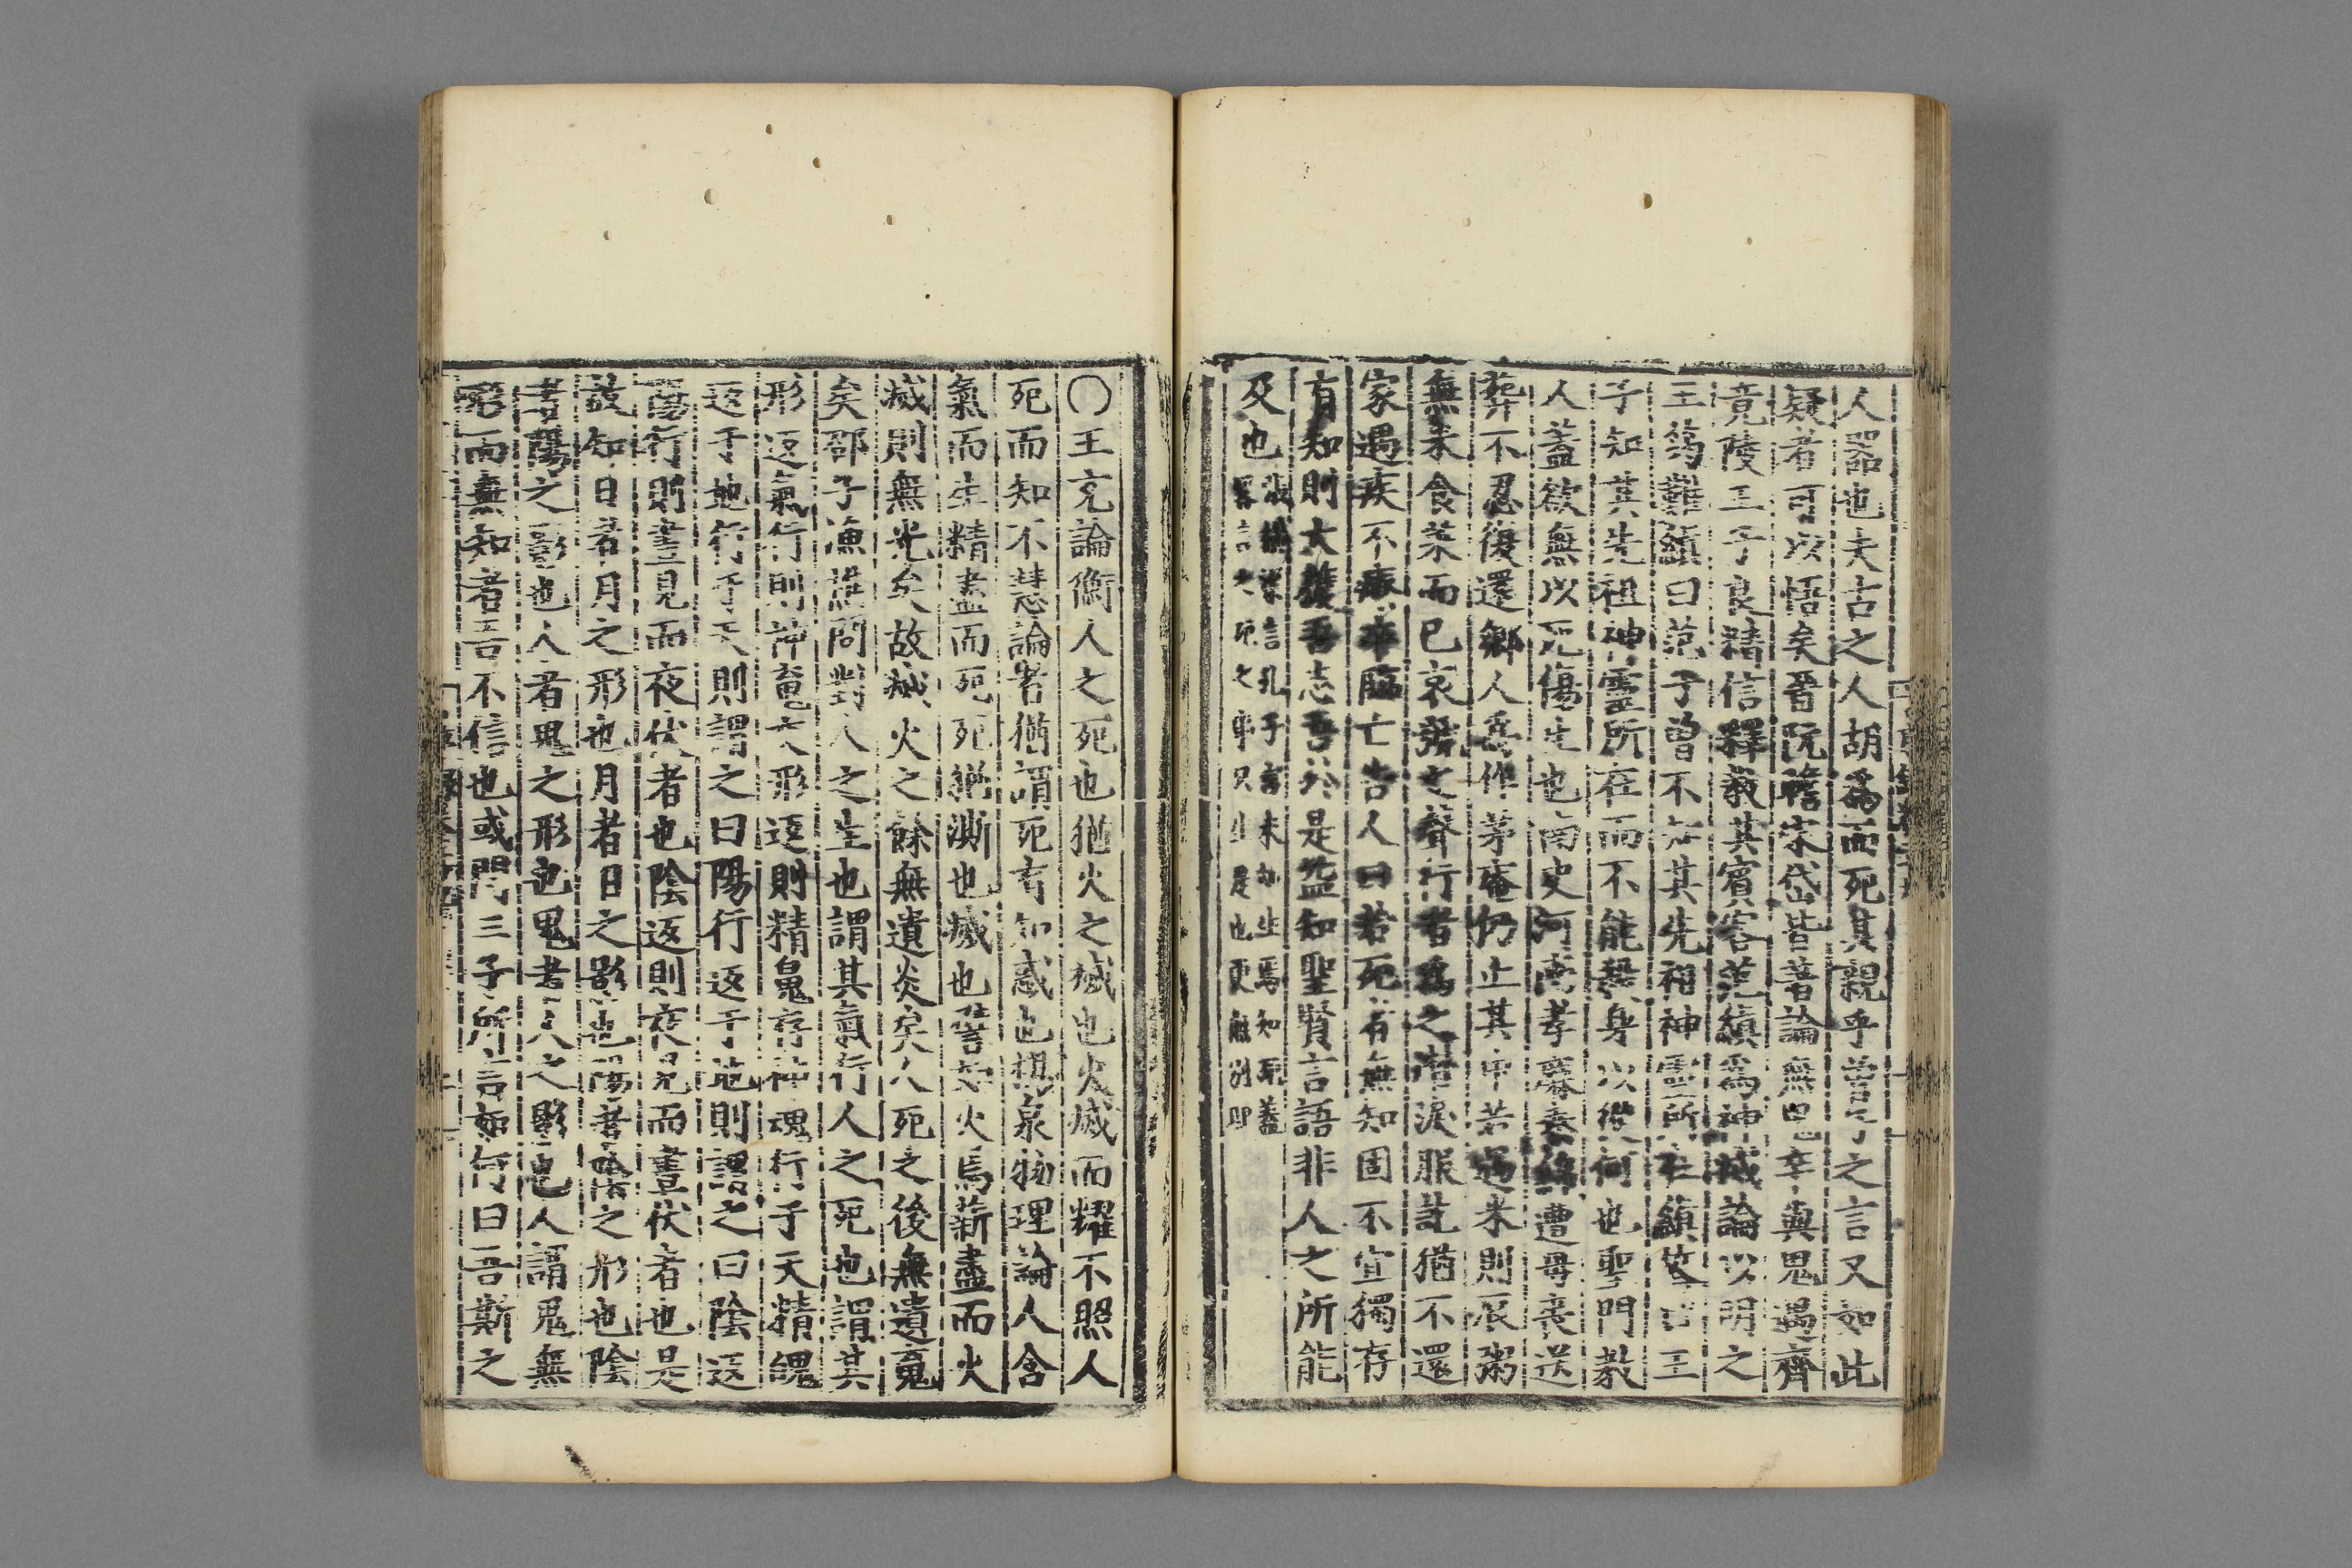 人器也夫古之人胡爲而死其親乎嘗了之言又如此
疑者可以悟矣晉阮瞻宋岱皆著論無鬼卒與鬼遇齊
竟陵王子良精信釋敎其賓客范縝爲神滅論以明之
王筠難縝曰范子曾不知其先祖神靈所在縝答曰王
子知其先祖神靈所在而不能殺身以從何也聖門敎
人蓋欲無以死傷生也南史河南孝廉秦綿遭母喪送
葬不忍復還鄉人爲作茅庵仍止其中若遇米則辰粥
無米食菜而已哀號之聲行者爲之淚服訖猶不還
家遇疾不療卒臨亡告人曰若死有無知固不宜獨存
有知則大獲吾志吾於是益知聖賢言語非人之所能
及也
張橫渠言孔子言未知生焉知死蓋
畧言之死之事只生是也更無別理
〇王充論衡人之死也猶火之滅也火滅而耀不照人
死而知不慧論者猶謂死有知惑也楊泉物理論人含
氣而生精盡而死死猶澌也滅也譬如火焉薪盡而火
滅則無光矣故滅火之餘無遺炎矣人死之後無遺魂
矣邵子漁樵問對人之生也謂其氣行人之死也謂其
形返氣行則神魂交形返則精魄存神魂行于天精魄
返于地行于天則謂之曰陽行返于地則謂之曰陰返
陽行則晝見而夜伏者也陰返則夜見而晝伏者也是
故知日者月之形也月者日之影也陽者陰之形也陰
者陽之影也人者鬼之形也鬼者人之影也人謂鬼無
形而無知者吾不信也或問三子所言如何曰吾斯之